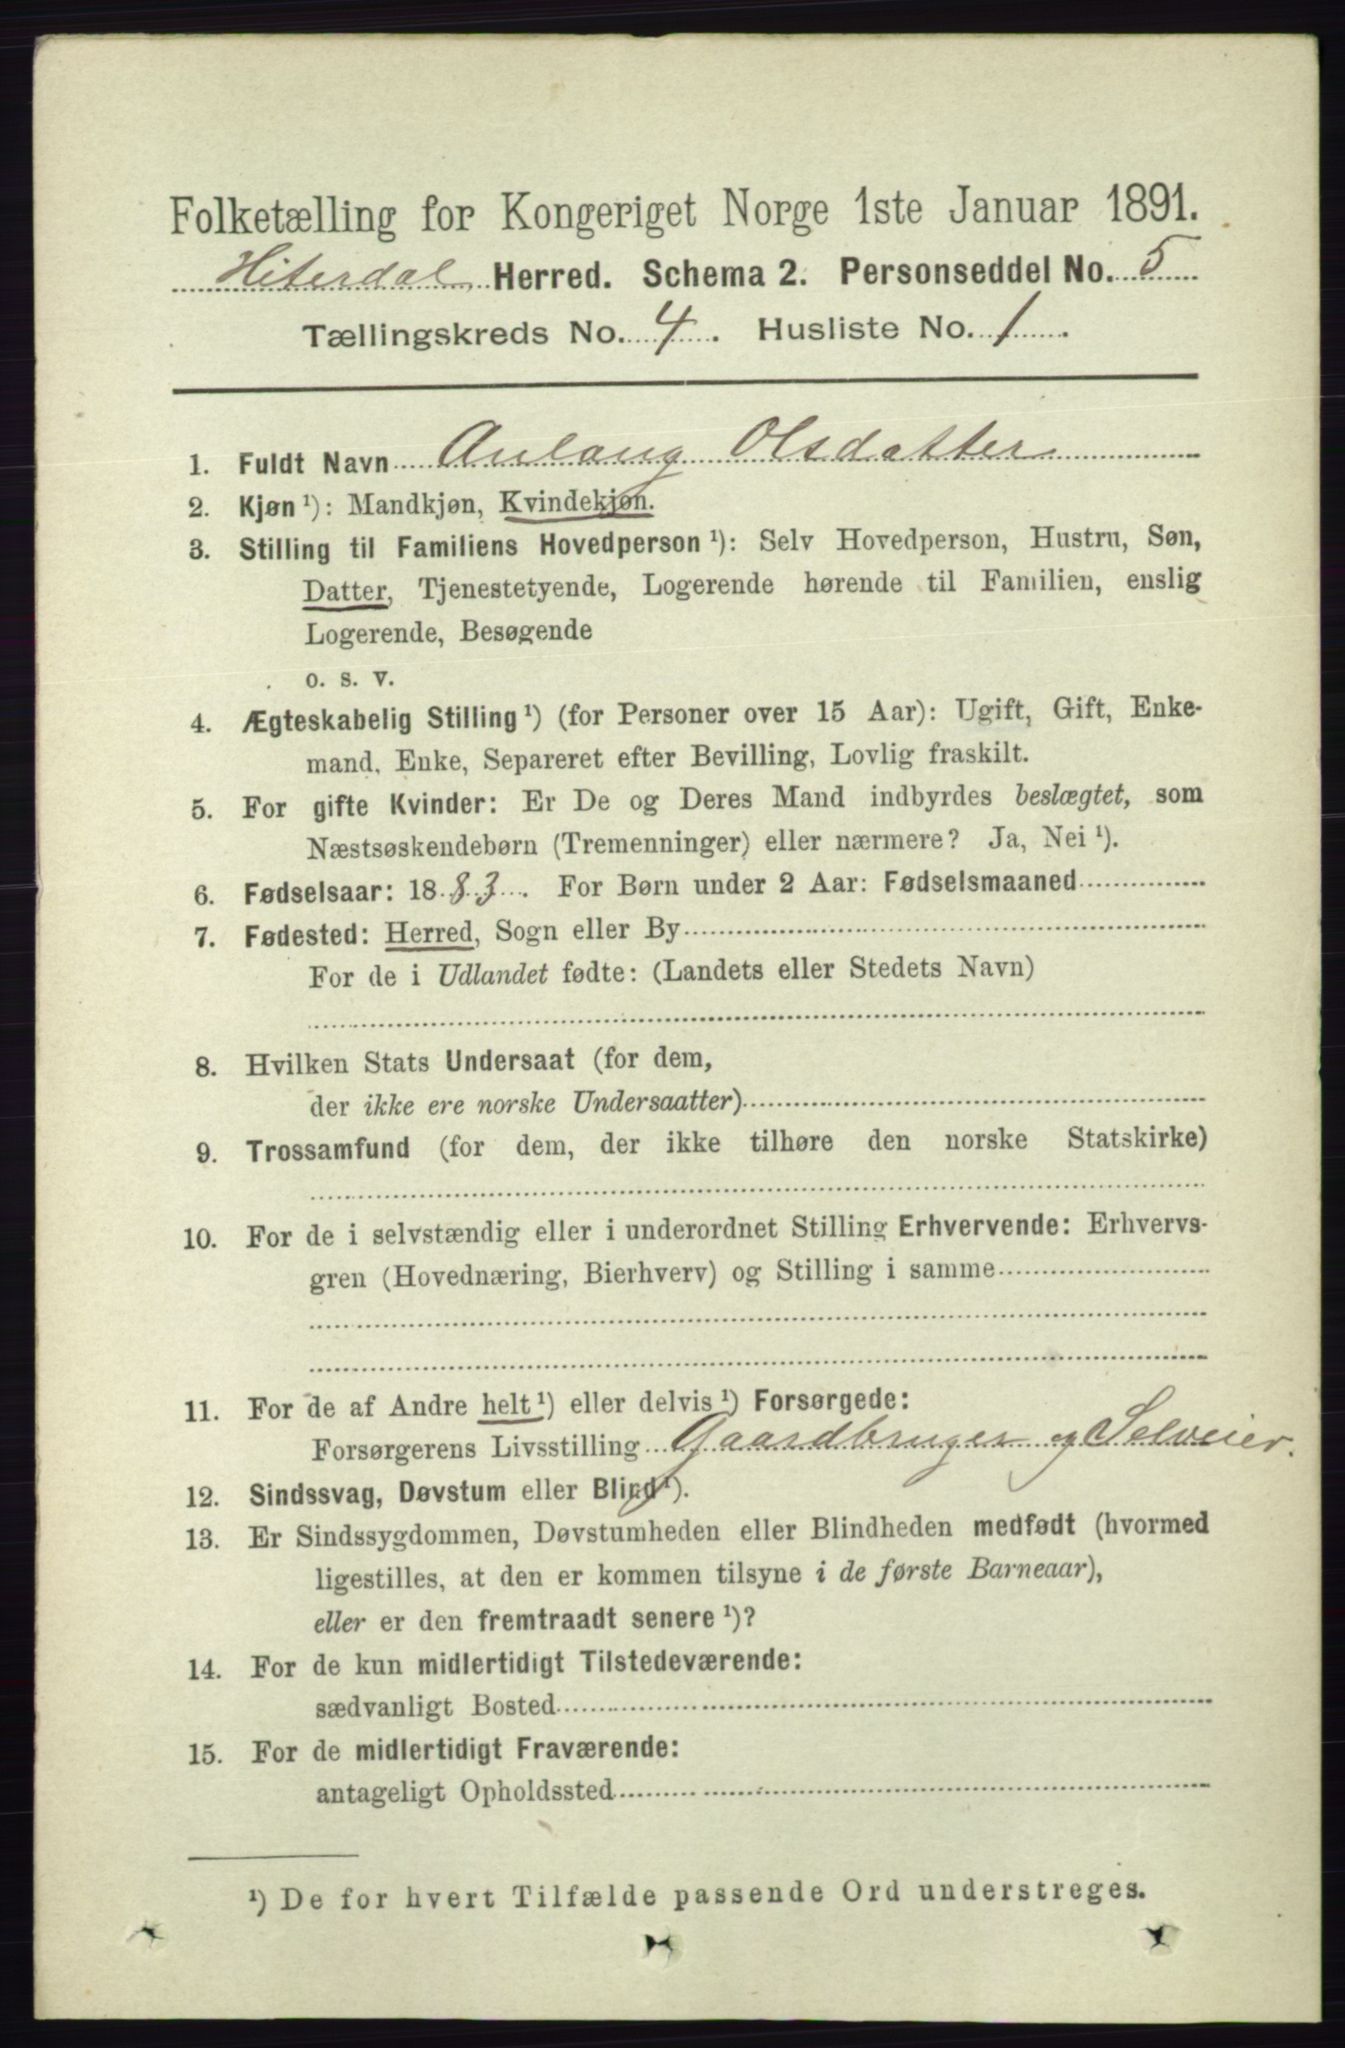 Folketælling for Kongeriget Norge 1ste Januar 1891.
Hiterdal Herred. Schema 2. Personseddel No. 5
Tællingskreds No. 4. Husliste No. 1.
1. Fuldt Navn Aulaug Olsdatter
2. Kjøn ¹): Mandkjøn, Kvindekjøn.
3. Stilling til Familiens Hovedperson ¹): Selv Hovedperson, Hustru, Søn,
Datter, Tjenestetyende, Logerende hørende til Familien, enslig
Logerende, Besøgende
o. s. v.
4. Ægteskabelig Stilling ¹) (for Personer over 15 Aar): Ugift, Gift, Enke-
mand, Enke, Separeret efter Bevilling, Lovlig fraskilt.
5. For gifte Kvinder: Er De og Deres Mand indbyrdes beslægtet, som
Næstsøskendebørn (Tremenninger) eller nærmere? Ja, Nei ¹).
6. Fødselsaar: 1883. For Børn under 2 Aar: Fødselsmaaned
7. Fødested: Herred, Sogn eller By
For de i Udlandet fødte: (Landets eller Stedets Navn)
8. Hvilken Stats Undersaat (for dem,
der ikke ere norske Undersaatter)
9. Trossamfund (for dem, der ikke tilhøre den norske Statskirke)
10. For de i selvstændig eller i underordnet Stilling Erhvervende: Erhvervs-
gren (Hovednæring, Bierhverv) og Stilling i samme
11. For de af Andre helt ¹) eller delvis ¹) Forsørgede:
Forsørgerens Livsstilling Gaardbruger og Selveier.
12. Sindssvag, Døvstum eller Blind ¹).
13. Er Sindssygdommen, Døvstumheden eller Blindheden medfødt (hvormed
ligestilles, at den er kommen tilsyne i de første Barneaar),
eller er den fremtraadt senere ¹)?
14. For de kun midlertidigt Tilstedeværende:
sædvanligt Bosted
15. For de midlertidigt Fraværende:
antageligt Opholdssted
¹) De for hvert Tilfælde passende Ord understreges.